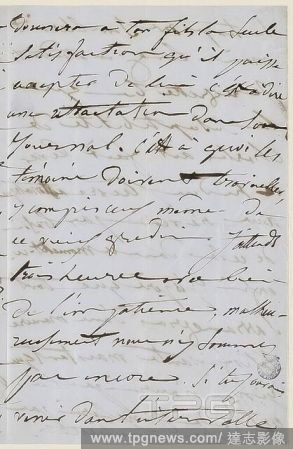 Donner à ton fils la seule
satisfaction qu'il puisse
accepter de lui c'est à dire
une rétractation dans son
Journal. C'est à quoi les
témoins doivent travailler
y compris ceux même de
ce vieux gredin J'attends
heure bien
de l'impatience, malheu-
reusement nous n'y sommes
pas encore. Si tu pouvais
venir dans salle
TPG
www.tpgnews.com / 達志影像